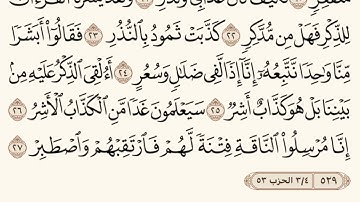 لِلذِّكْرِ فَهَلْ مِن مُّدَّكِرٍ ٢٢ كَذَّبَتْ ثَمُودُ بِٱلنُّذُرِ ٢٣ فَقَالُوٓا۟ أَبَشَرًا
مِّنَّا وَٰحِدًا نَّتَّبِعُهُۥٓ إِنَّآ إِذًا لَّفِى ضَلَٰلٍ وَسُعُرٍ ٢٤ أَءُلْقِىَ ٱلذِّكْرُ عَلَيْهِ مِنۢ
بَيْنِنَا بَلْ هُوَ كَذَّابٌ أَشِرٌ ٢٥ سَيَعْلَمُونَ غَدًا مَّنِ ٱلْكَذَّابُ ٱلْأَشِرُ ٢٦
إِنَّا مُرْسِلُوا۟ ٱلنَّاقَةِ فِتْنَةً لَّهُمْ فَٱرْتَقِبْهُمْ وَٱصْطَبِرْ ٢٧
٥٢٩ ٣/٤ الحزب ٥٣